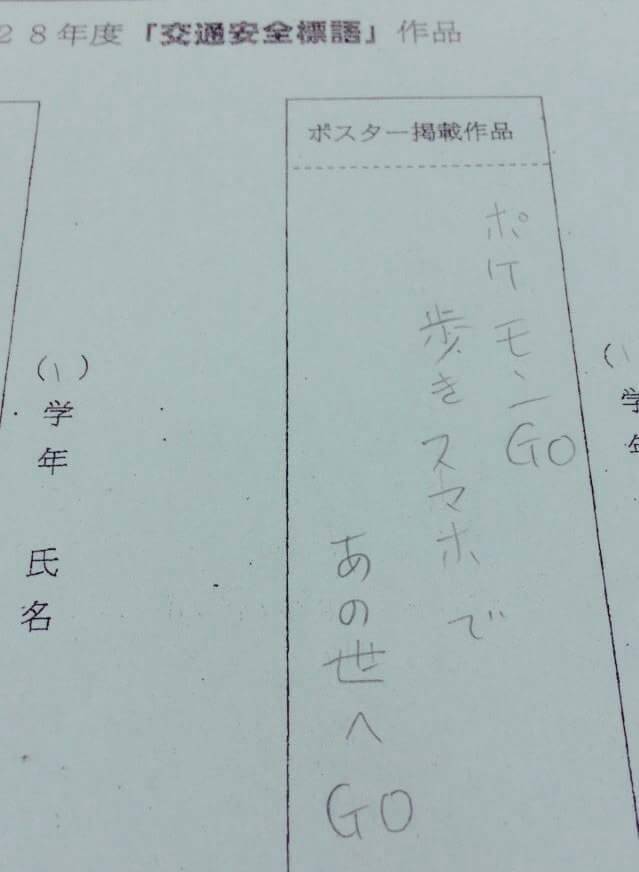 28年度「交通安全標語」作品
ポスター掲載作品
ポケモンGO
歩きスマホで
あの世へGO
(1)学年 氏名